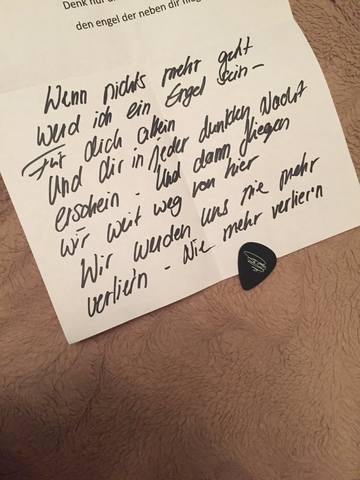 Denk nur
den engel der neben dir flieg
Wenn nichts mehr geht
Werd ich ein Engel sein -
Für dich allein
Und dir in jeder dunklen Nacht
erschein - Und dann fliegen
wir weit weg von hier
Wir werden uns nie mehr
verlier'n - Nie mehr verlier'n